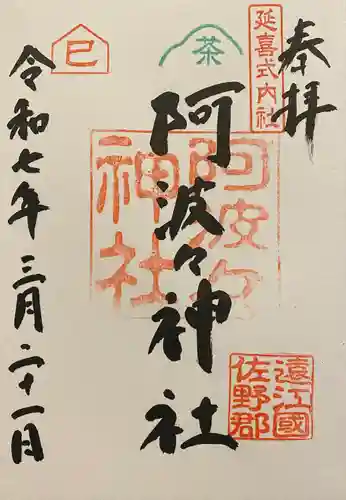 奉拝
延喜式内社
茶
巳
阿波々神社
阿波々神社
遠江國佐野郡
令和七年三月二十一日